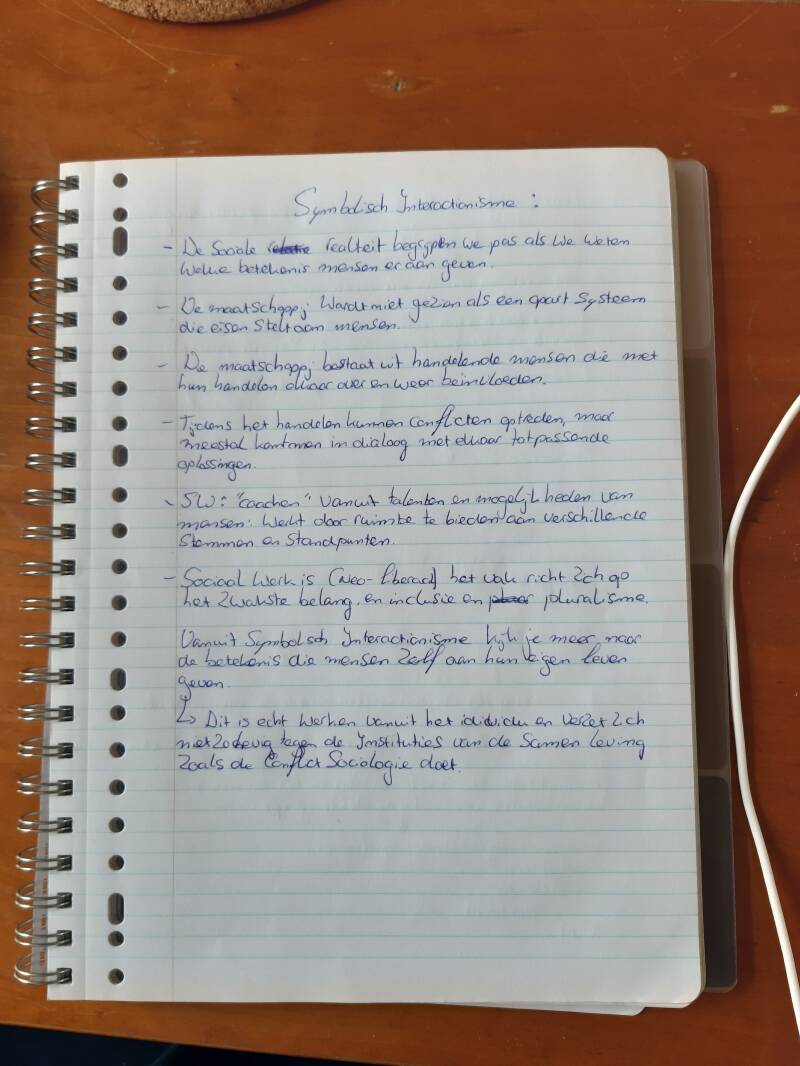 Symbolisch Interactionisme :
- De Sociale relatie realteit begrijpen we pas als we weten
welke betekenis mensen er aan geven.
- De maatschappij wordt niet gezien als een apart systeem
die eisen stelt aan mensen.
- De maatschappij bestaat uit handelende mensen die met
hun handelen elkaar over en weer beïnvloeden.
- Tijdens het handelen kunnen conflicten optreden, maar
meestal kan men in dialoog met elkaar tot passende
oplossingen.
- SW: "coachen" vanuit talenten en mogelijkheden van
mensen: Werkt door ruimte te bieden aan verschillende
Stemmen en Standpunten.
- Sociaal Werk is (Neo-liberaal) het vak richt zich op
het zwakste belang. en inclusie en pluralisme.
Vanuit Symbolisch Interactionisme kijk je meer naar
de betekenis die mensen zelf aan hun eigen leven
geven.
↳ Dit is echt werken vanuit het individu en verzet zich
niet zo hevig tegen de Instituties van de Samenleving
Zoals de Conflict Sociologie doet.